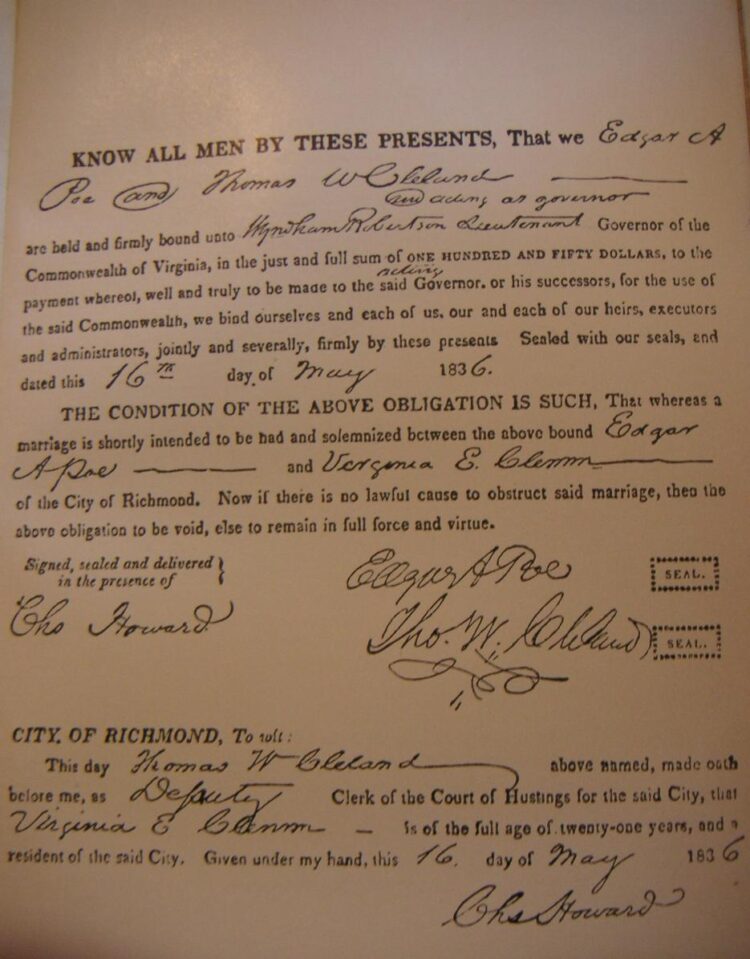 KNOW ALL MEN BY THESE PRESENTS, That we Edgar A
Poe and Thomas W Cleland
and acting as governor
are held and firmly bound unto Wyndham Robertson Lieutenant Governor of the
Commonwealth of Virginia, in the just and full sum of ONE HUNDRED AND FIFTY DOLLARS, to the
acting
payment whereof, well and truly to be made to the said Governor, or his successors, for the use of
the said Commonwealth, we bind ourselves and each of us, our and each of our heirs, executors
and administrators, jointly and severally, firmly by these presents Sealed with our seals, and
dated this 16th day of May 1836.
THE CONDITION OF THE ABOVE OBLIGATION IS SUCH, That whereas a
marriage is shortly intended to be had and solemnized between the above bound Edgar
A Poe and Virginia E. Clemm
of the City of Richmond. Now if there is no lawful cause to obstruct said marriage, then the
above obligation to be void, else to remain in full force and virtue.
Signed, sealed and delivered
in the presence of
Edgar A Poe SEAL.
Chs Howard
Tho. W. Cleland SEAL.
CITY OF RICHMOND, To wit:
This day Thomas W Cleland above named, made oath
before me, as Deputy Clerk of the Court of Hustings for the said City, that
Virginia E Clemm is of the full age of twenty-one years, and a
resident of the said City. Given under my hand, this 16. day of May 1836
Chs Howard